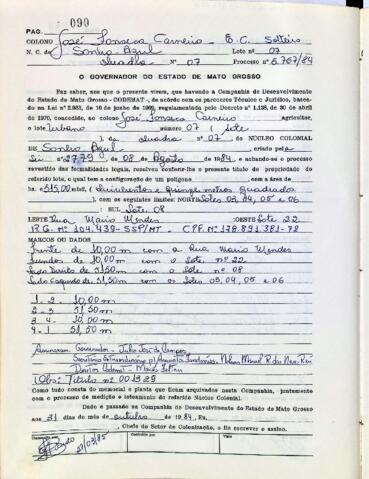 PAG. 099
COLONO José Fonseca Carneiro E.C. Solteiro
N. C. de Sonho Azul Lote nº 07
Quadra Nº 07 Processo nº 6.767/84
O GOVERNADOR DO ESTADO DE MATO GROSSO
Faz saber, aos que o presente virem, que havendo a Companhia de Desenvolvimento
do Estado de Mato Grosso - CODEMAT -, de acordo com os pareceres Técnico e Jurídico, basea-
do na Lei nº 2.983, de 10 de junho de 1969, regulamentada pelo Decreto nº 1.138, de 30 de abril
de 1970, concedido, ao colono José Fonseca Carneiro agricultor,
o lote Urbano número 07 ( Sete
), da quadra nº 07, do NÚCLEO COLONIAL
DE Sonho Azul criado pela
Lei nº 2779 de 08 de Agosto de 1984, e achando-se o processo
revestido das formalidades legais, resolveu conferir-lhe o presente título de propriedade do
referido lote, o qual tem a configuração de um polígono com a área de
hs. 515,00 mts² ( Quinhentos e quinze metros quadrados
), com os seguintes limites: NORTE Lotes 03, 04, 05 e 06
; SUL Lote 08
LESTE Rua Mario Mendes; OESTE Lote 22
R.G. Nº 104.439-SSP/MT - CPF. Nº 178.891.381-72
MARCOS OU DADOS
Frente de 10,00m com a Rua Mario Mendes
Fundos de 10,00m com o Lote nº 22
Lado Direito de 51,50m com o Lote nº 08
Lado Esquerdo de 51,50m com os Lotes 03, 04, 05 e 06
1-2 10,00m
2-3 51,50m
3-4 10,00m
4-1 51,50m
Assinaram: Governador - Julio José de Campos
(Obs: Título nº 001929
Como tudo consta do memorial e planta que ficam arquivados nesta Companhia, juntamente
com o processo de medição e loteamento do referido Núcleo Colonial.
Dado e passado na Companhia de Desenvolvimento do Estado de Mato Grosso
aos 31 dias do mês de outubro de 1984. Eu,
, Chefe do Setor de Colonização, o fiz escrever e assino.
Conferido por
Visto
29/03/85